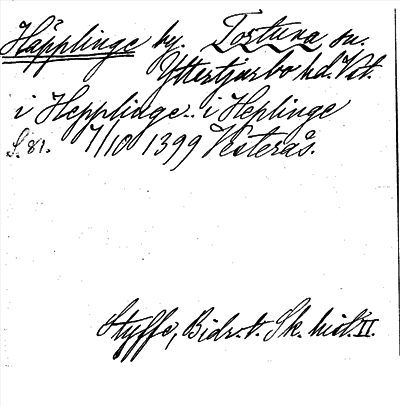 Häpplinge by. Tortuna sn.
Yttertjurbo hd. Vst.
i Hepplinge.. i Heplinge
S. 81. 7/10 1399 Vesterås.
Styffe, Bidr. t. Sk. hist. II.